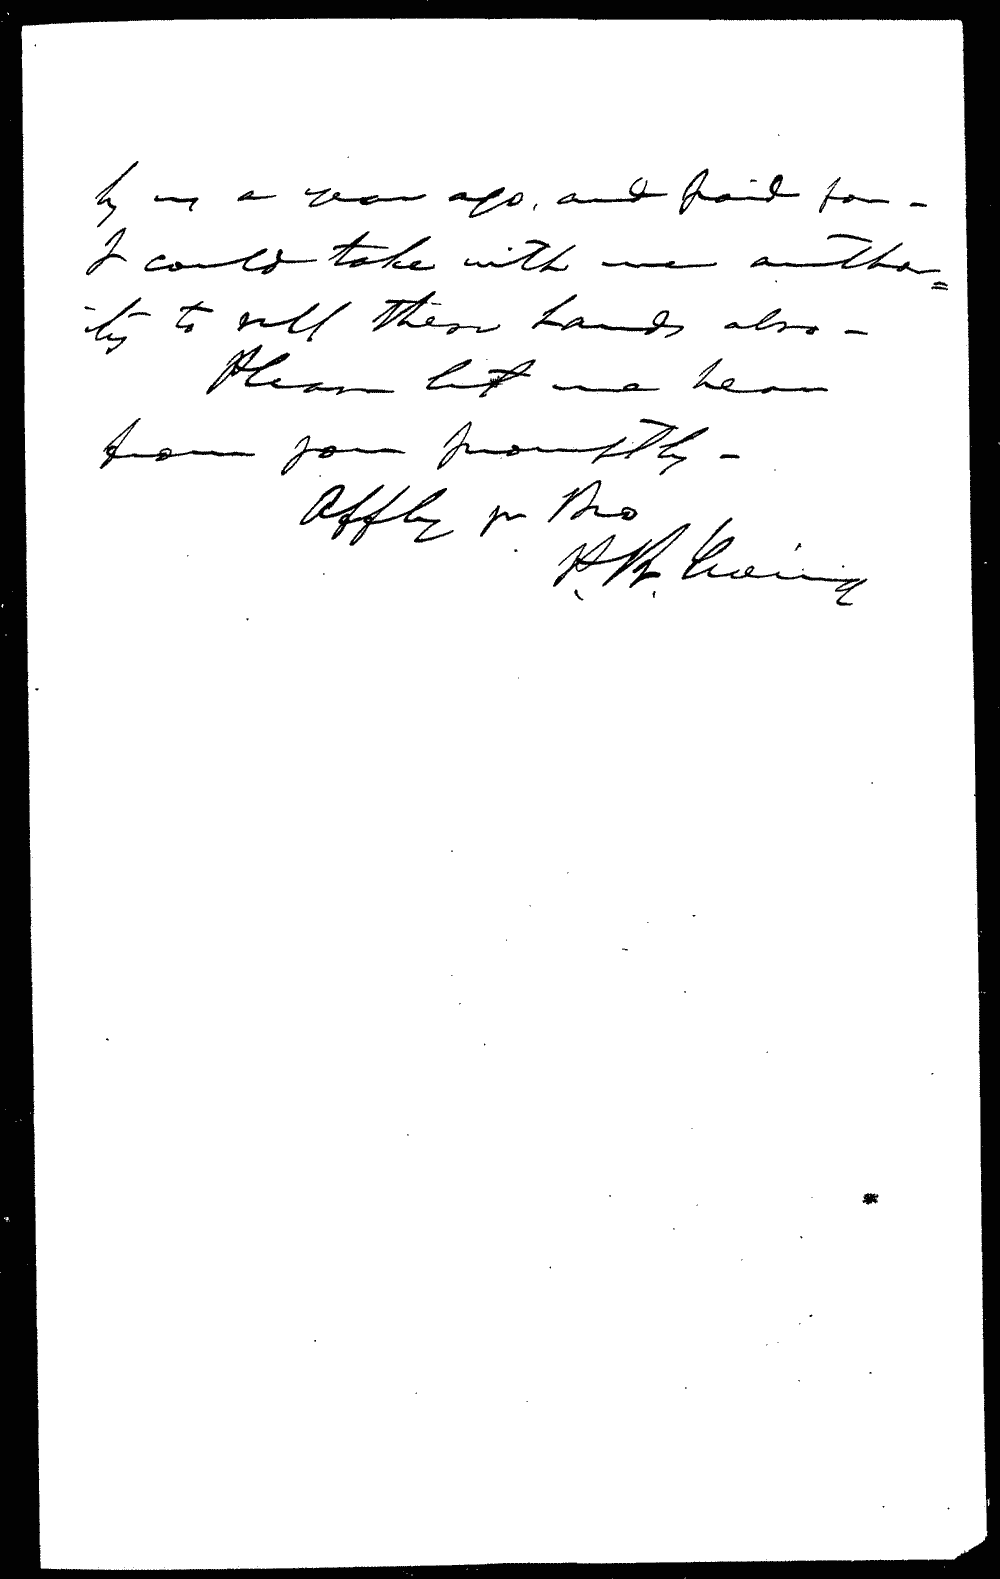 by us a year ago, and paid for -
I could take with me author=
ity to sell these lands also -
Please let me hear
from you promptly -
Affly yr Bro
P. B. Ewing